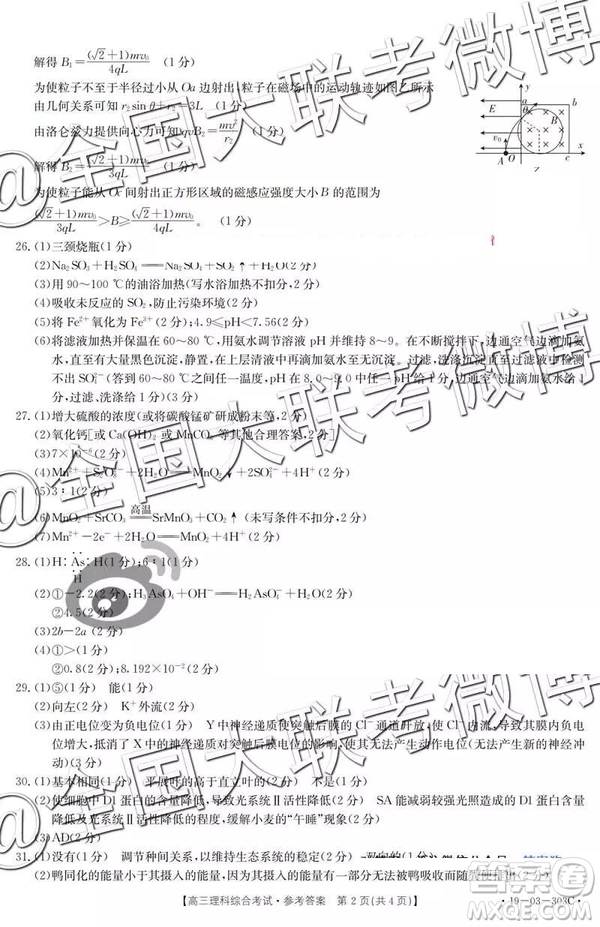 解得 B₁=(√2+1)mv₀/4qL (1分)
为使粒子不至于半径过小从 Oa 边射出,粒子在磁场中的运动轨迹如图乙所示
由几何关系可知 r₂sin θ+r₂=3L (1分)
由洛仑兹力提供向心力可知 qvB₂=mv²/r₂ (1分)
解得 B₂=(√2+1)mv₀/3qL (1分)
为使粒子能从 Oc 间射出正方形区域的磁感应强度大小 B 的范围为
(√2+1)mv₀/3qL>B≥(√2+1)mv₀/4qL。 (1分)
26. (1)三颈烧瓶(1分)
(2)Na₂SO₃+H₂SO₄══Na₂SO₄+SO₂↑+H₂O(2分)
(3)用 90~100 ℃的油浴加热(写水浴加热不扣分,2分)
(4)吸收未反应的 SO₂,防止污染环境(2分)
(5)将 Fe²⁺氧化为 Fe³⁺(2分);4.9≤pH<7.56(2分)
(6)将滤液加热并保温在 60~80 ℃,用氨水调节溶液 pH 并维持 8~9。在不断搅拌下,边通空气边滴加氨
水,直至大量黑色沉淀,静置,在上层清液中再滴加氨水至无沉淀。过滤,洗涤沉淀至洗涤液中检测不
出 SO₄²⁻(答到 60~80 ℃之间任一温度,pH 在 8.0~9.0 中答出一个或范围均给分,边通空气边加氨水给 1
分,过滤、洗涤给 1 分)(3分)
27. (1)增大硫酸的浓度(或将碳酸锰矿研成粉末等,2分)
(2)氧化钙[或 Ca(OH)₂或 MnCO₃等其他合理答案,2分]
(3)7×10⁻⁶(2分)
(4)Mn²⁺+S₂O₈²⁻+2H₂O══MnO₂↓+2SO₄²⁻+4H⁺(2分)
(5)3∶1(2分)
(6)MnO₂+SrCO₃高温══SrMnO₃+CO₂↑(未写条件不扣分,2分)
(7)Mn²⁺−2e⁻+2H₂O══MnO₂+4H⁺(2分)
28. (1)H∶As∶H(1分);6∶1(1分)
H
(2)①−2.2(2分);H₃AsO₄+OH⁻══H₂AsO₄⁻+H₂O(2分)
②4.5(2分)
(3)2b−2a(2分)
(4)①>(1分)
②0.8(2分);8.192×10⁻²(2分)
29. (1)⑤(1分) 能(1分)
(2)向左(2分) K⁺外流(2分)
(3)由正电位变为负电位(1分) Y 中神经递质使突触后膜的 Cl⁻通道开放,使 Cl⁻内流,导致其膜内负电位
增大,抵消了 X 中的神经递质对突触后膜电位的影响,因而表现为突触后膜无法产生新的神经冲
动(3分)
30. (1)基本相同(1分) 平展叶的高于直立叶的(2分) 不是(1分)
(2)使细胞中 D1 蛋白的含量降低,导致光系统Ⅱ活性降低(2分) SA 能减弱较强光照造成的 D1 蛋白含
量降低及光系统Ⅱ活性的降低,缓解小麦的“午睡”现象(2分)
(3)AD(2分)
31. (1)没有(1分) 调节种间关系,维持生态系统的稳定(2分)
(2)鸭同化的能量一部分用于自身的生长、发育和繁殖(2分)
【高三理科综合考试·参考答案 第 2 页(共 4 页)】
·19-03-303C·
@全国大联考微博